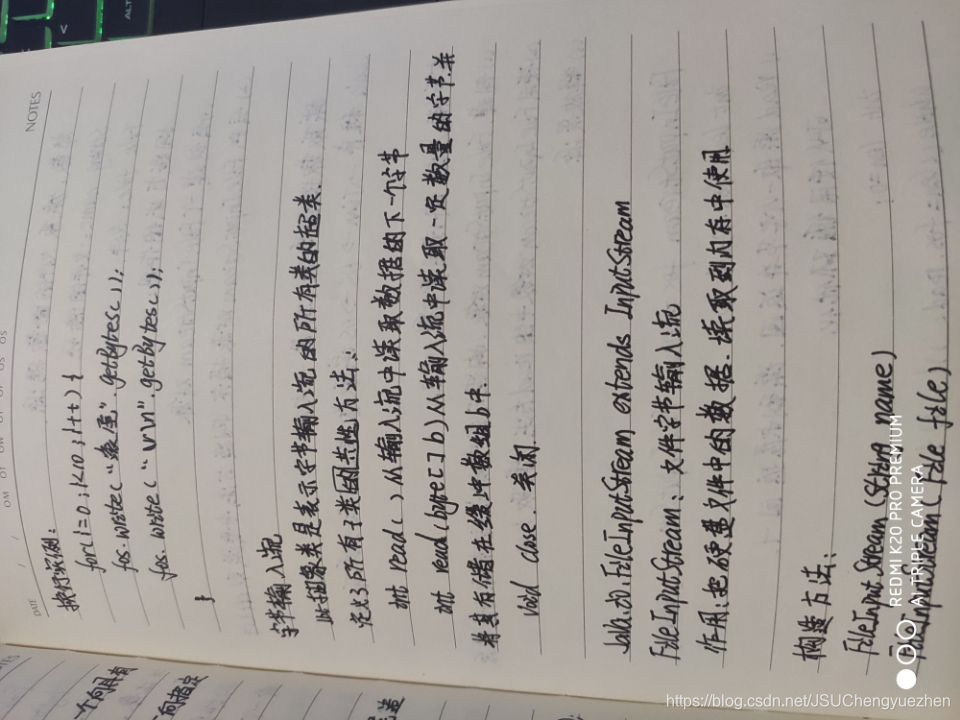 NOTES
DATE
换行实例:
for(i=0;i<10;i++){
fos.write("".getBytes());
fos.write("\r\n".getBytes());
}
字节输入流
此抽象类是表示字节输入流的所有类的超类.
定义了所有子类的共性方法:
int read()从输入流中读取数据的下一个字节
int read(byte[]b)从输入流中读取一定数量的字节.并
将其存储在缓冲数组b中.
void close.关闭.
Java.io.FileInputStream extends InputStream
FileInputStream:文件字节输入流
作用:把硬盘文件中的数据.读取到内存中使用.
构造方法:
FileInputStream(String name)
FileInputStream(File file)
REDMI K20 PRO PREMIUM
AI TRIPLE CAMERA
https://blog.csdn.net/JSUChengyuezhen